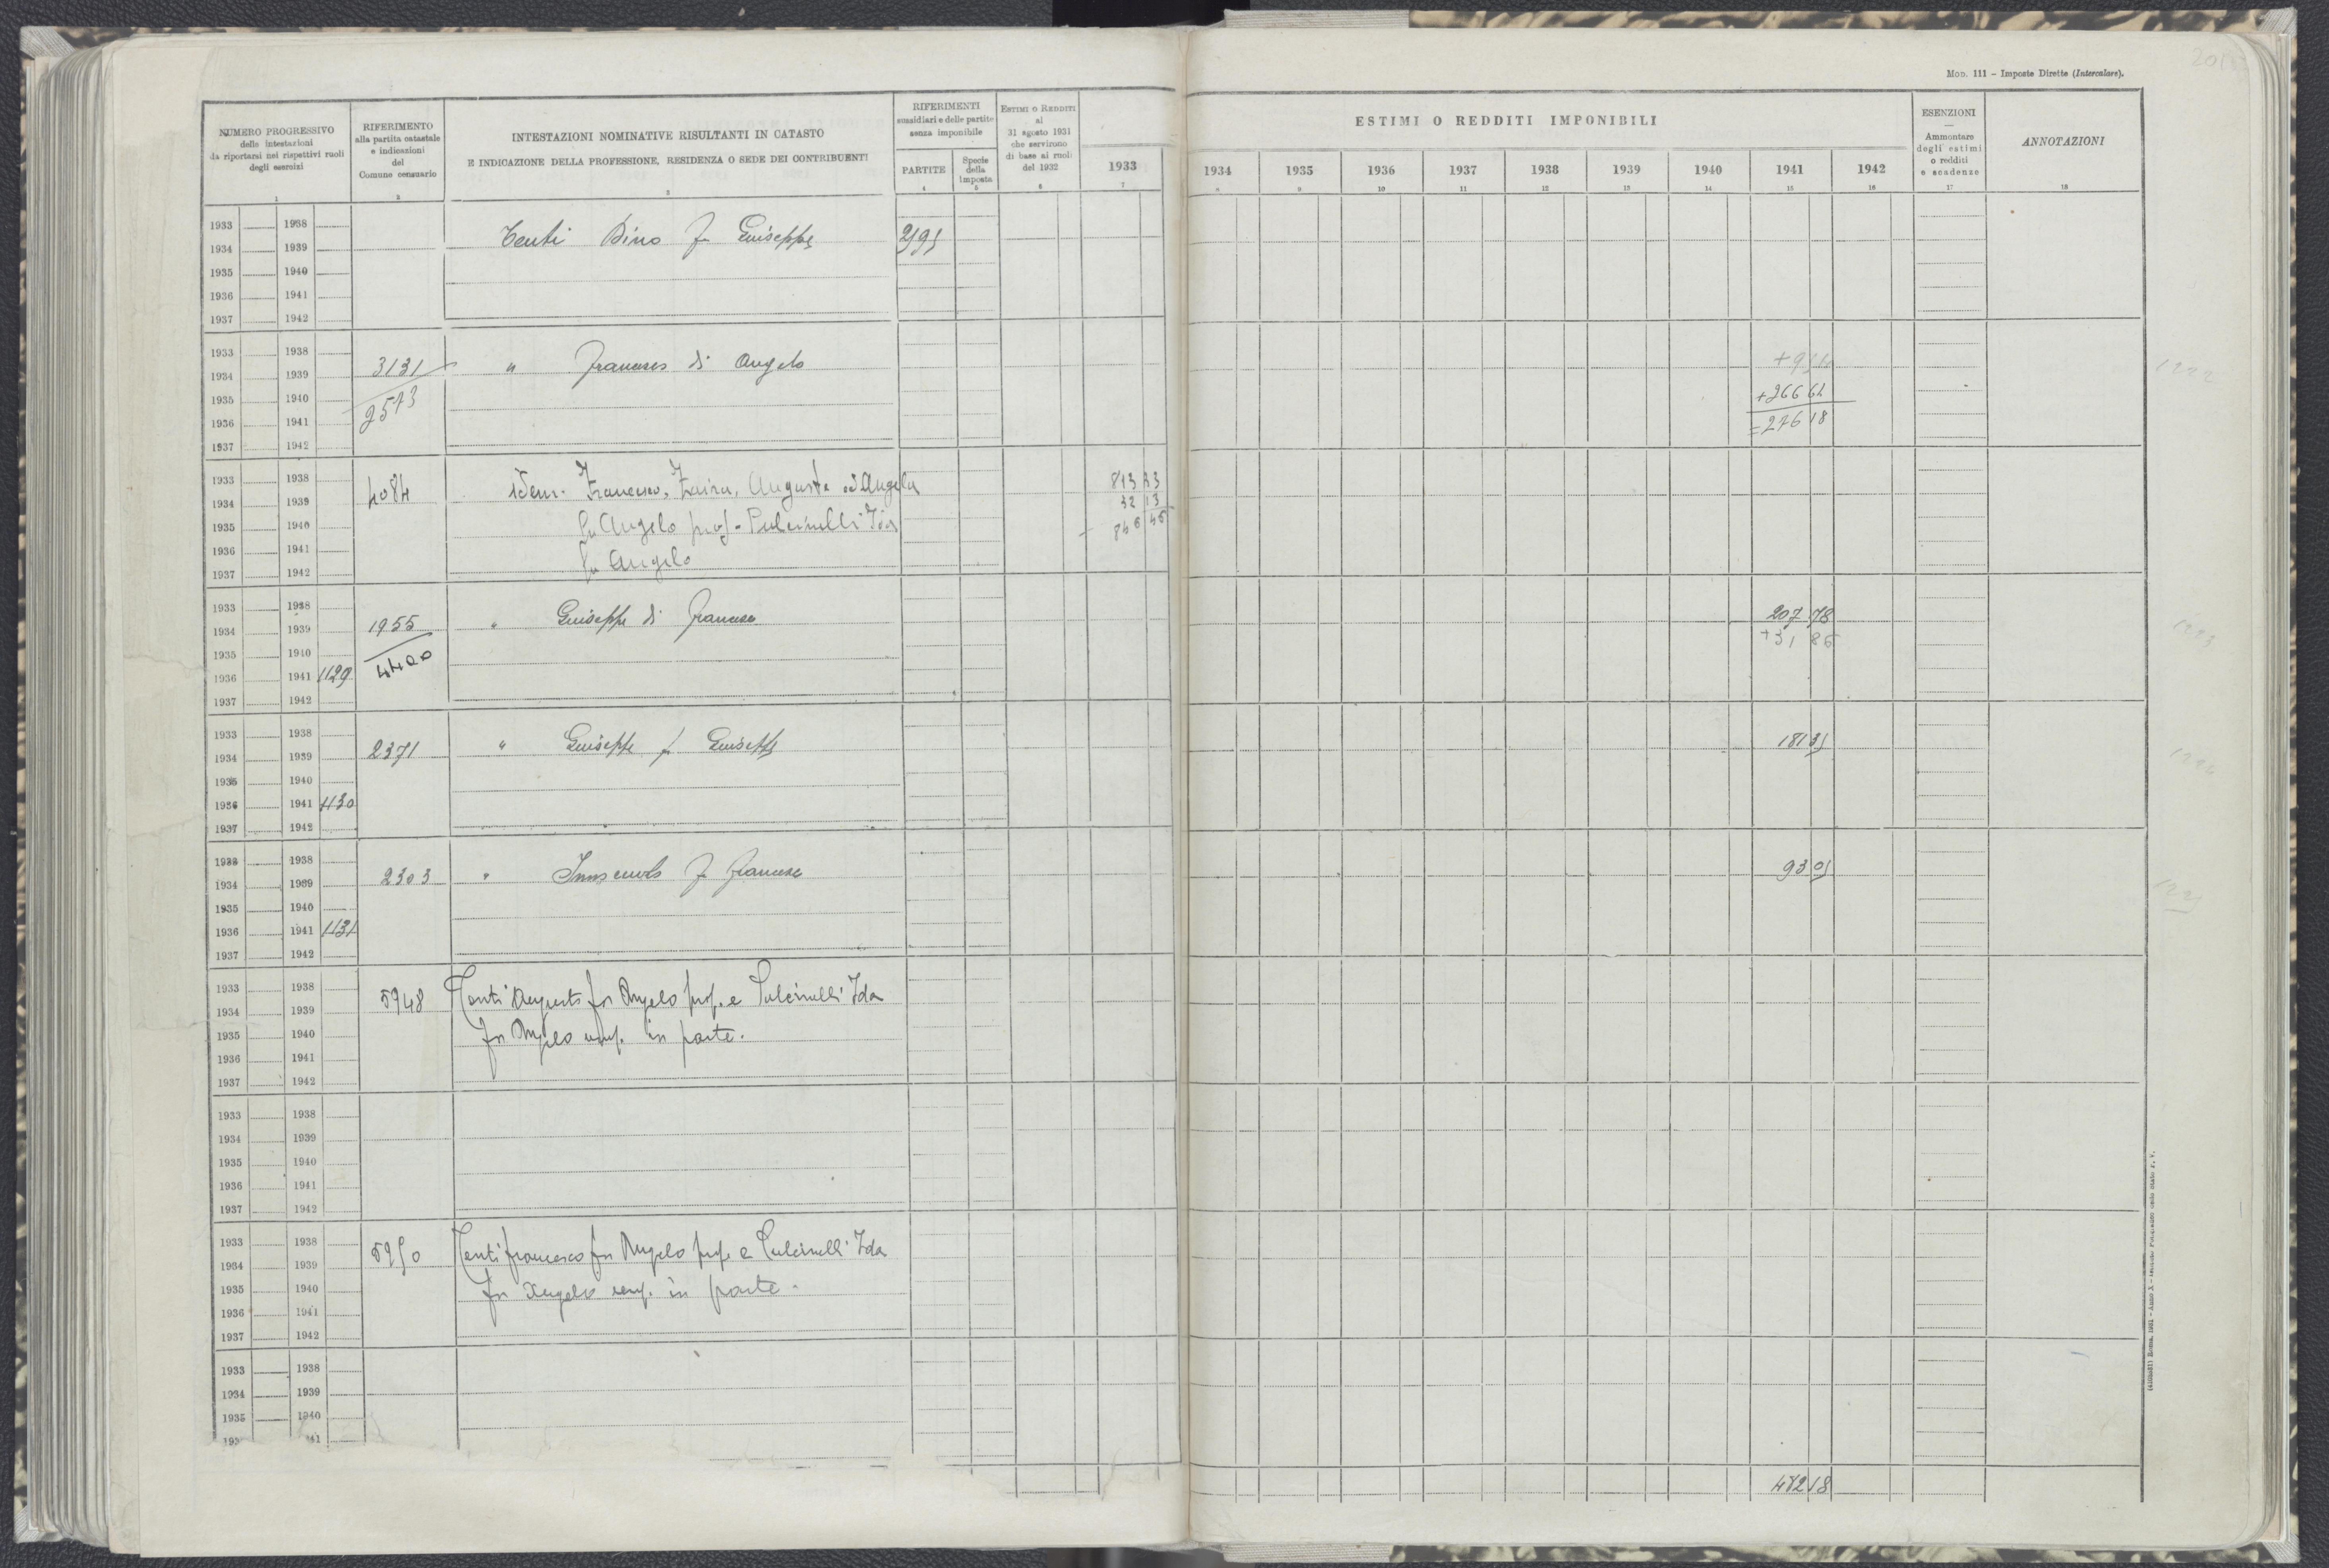 Mod. 111 – Imposte Dirette (Intercalare).
NUMERO PROGRESSIVO
delle intestazioni
da riportarsi nei rispettivi ruoli
degli esercizi
1
RIFERIMENTO
alla partita catastale
e indicazioni
del
Comune censuario
2
INTESTAZIONI NOMINATIVE RISULTANTI IN CATASTO
E INDICAZIONE DELLA PROFESSIONE, RESIDENZA O SEDE DEI CONTRIBUENTI
3
RIFERIMENTI
sussidiari e delle partite
senza imponibile
PARTITE
4
Specie
della
Imposta
5
ESTIMI O REDDITI
al
31 agosto 1931
che servirono
di base ai ruoli
del 1932
6
1933
7
ESTIMI O REDDITI IMPONIBILI
1934 1935 1936 1937 1938 1939 1940 1941 1942
8 9 10 11 12 13 14 15 16
ESENZIONI
—
Ammontare
degli estimi
o redditi
e scadenze
17
ANNOTAZIONI
18
1933 1938
1934 1939 Tenti Dino fu Giuseppe
1935 1940
1936 1941
1937 1942
1933 1938
1934 1939 3131 " Francesco di Angelo
1935 1940 2573 +266 62
1936 1941 =276 18
1937 1942
1933 1938 4084 idem. Francesco, Zaira, Augusto ed Angela 813 33
1934 1939 32 13
1935 1940 fu Angelo prop. Pulcinelli Ida 845 46
1936 1941 fu Angelo
1937 1942
1933 1938 207 78
1934 1939 1955 " Giuseppe di Francesco +31 86
1935 1940 4400
1936 1941 1129
1937 1942
1933 1938
1934 1939 2371 " Giuseppe fu Giuseppe
1935 1940
1936 1941 1130
1937 1942
1933 1938
1934 1939 2303 " Innocenzo fu Francesco
1935 1940
1936 1941 1131
1937 1942
1933 1938 5948 Tenti Augusto fu Angelo prop. e Pulcinelli Ida
1934 1939
1935 1940 fu Angelo usuf. in parte.
1936 1941
1937 1942
1933 1938
1934 1939
1935 1940
1936 1941
1937 1942
1933 1938 5950 Tenti Francesco fu Angelo prop. e Pulcinelli Ida
1934 1939
1935 1940 fu Angelo usuf. in parte.
1936 1941
1937 1942
1933 1938
1934 1939
1935 1940
482 18